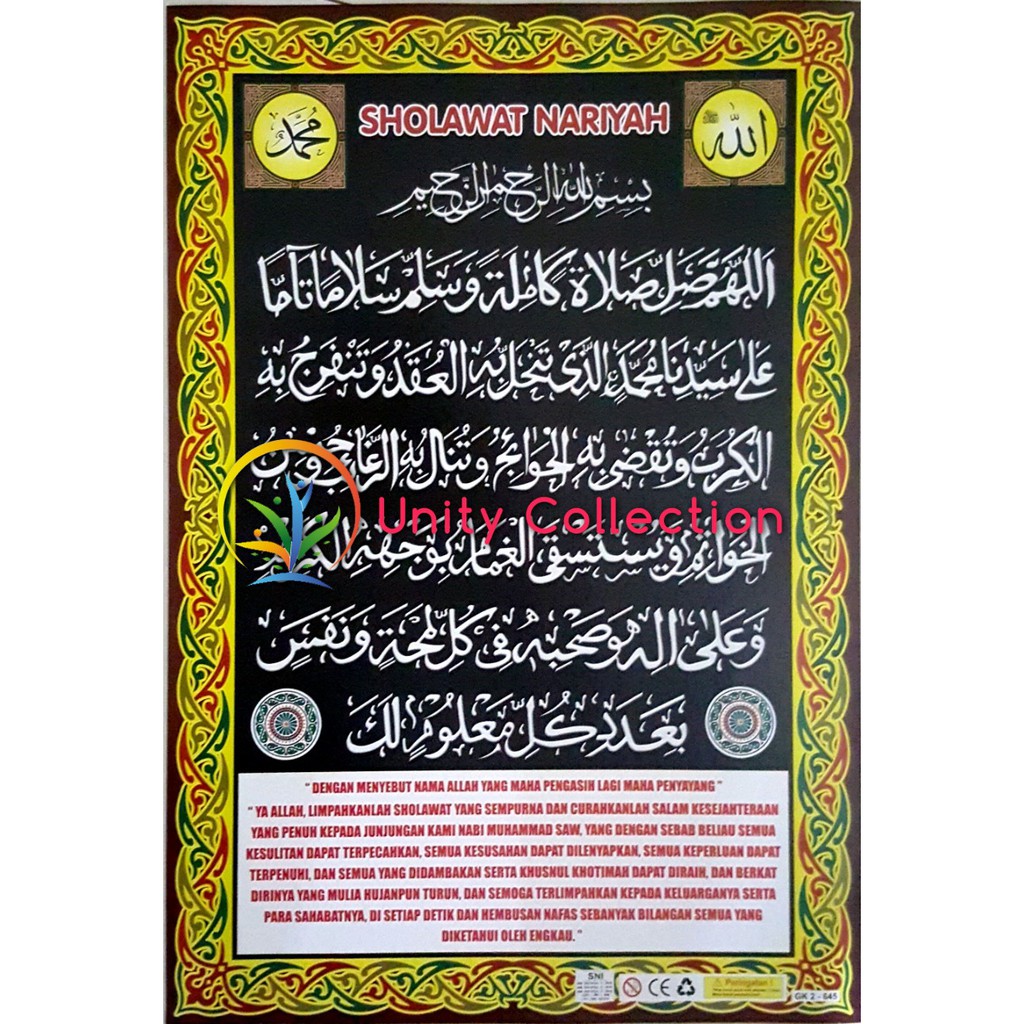 محمد
SHOLAWAT NARIYAH
الله
بسم الله الرحمن الرحيم
اَللّٰهُمَّ صَلِّ صَلَاةً كَامِلَةً وَسَلِّمْ سَلَامًا تَآمًّا
عَلَى سَيِّدِنَا مُحَمَّدٍ الَّذِى تَنْحَلُّ بِهِ الْعُقَدُ وَتَنْفَرِجُ بِهِ
الْكُرَبُ وَتُقْضَى بِهِ الْحَوَائِجُ وَتُنَالُ بِهِ الرَّغَائِبُ وَحُسْنُ
Unity Collection
الْخَوَاتِمِ وَيُسْتَسْقَى الْغَمَامُ بِوَجْهِهِ الْكَرِيْمِ
وَعَلَى اٰلِهِ وَصَحْبِهِ فِى كُلِّ لَمْحَةٍ وَنَفَسٍ
بِعَدَدِ كُلِّ مَعْلُوْمٍ لَكَ
" DENGAN MENYEBUT NAMA ALLAH YANG MAHA PENGASIH LAGI MAHA PENYAYANG "
" YA ALLAH, LIMPAHKANLAH SHOLAWAT YANG SEMPURNA DAN CURAHKANLAH SALAM KESEJAHTERAAN
YANG PENUH KEPADA JUNJUNGAN KAMI NABI MUHAMMAD SAW, YANG DENGAN SEBAB BELIAU SEMUA
KESULITAN DAPAT TERPECAHKAN, SEMUA KESUSAHAN DAPAT DILENYAPKAN, SEMUA KEPERLUAN DAPAT
TERPENUHI, DAN SEMUA YANG DIDAMBAKAN SERTA KHUSNUL KHOTIMAH DAPAT DIRAIH, DAN BERKAT
DIRINYA YANG MULIA HUJANPUN TURUN, DAN SEMOGA TERLIMPAHKAN KEPADA KELUARGANYA SERTA
PARA SAHABATNYA, DI SETIAP DETIK DAN HEMBUSAN NAFAS SEBANYAK BILANGAN SEMUA YANG
DIKETAHUI OLEH ENGKAU. "
SNI
CE
Peringatan !
GK 2 - 645